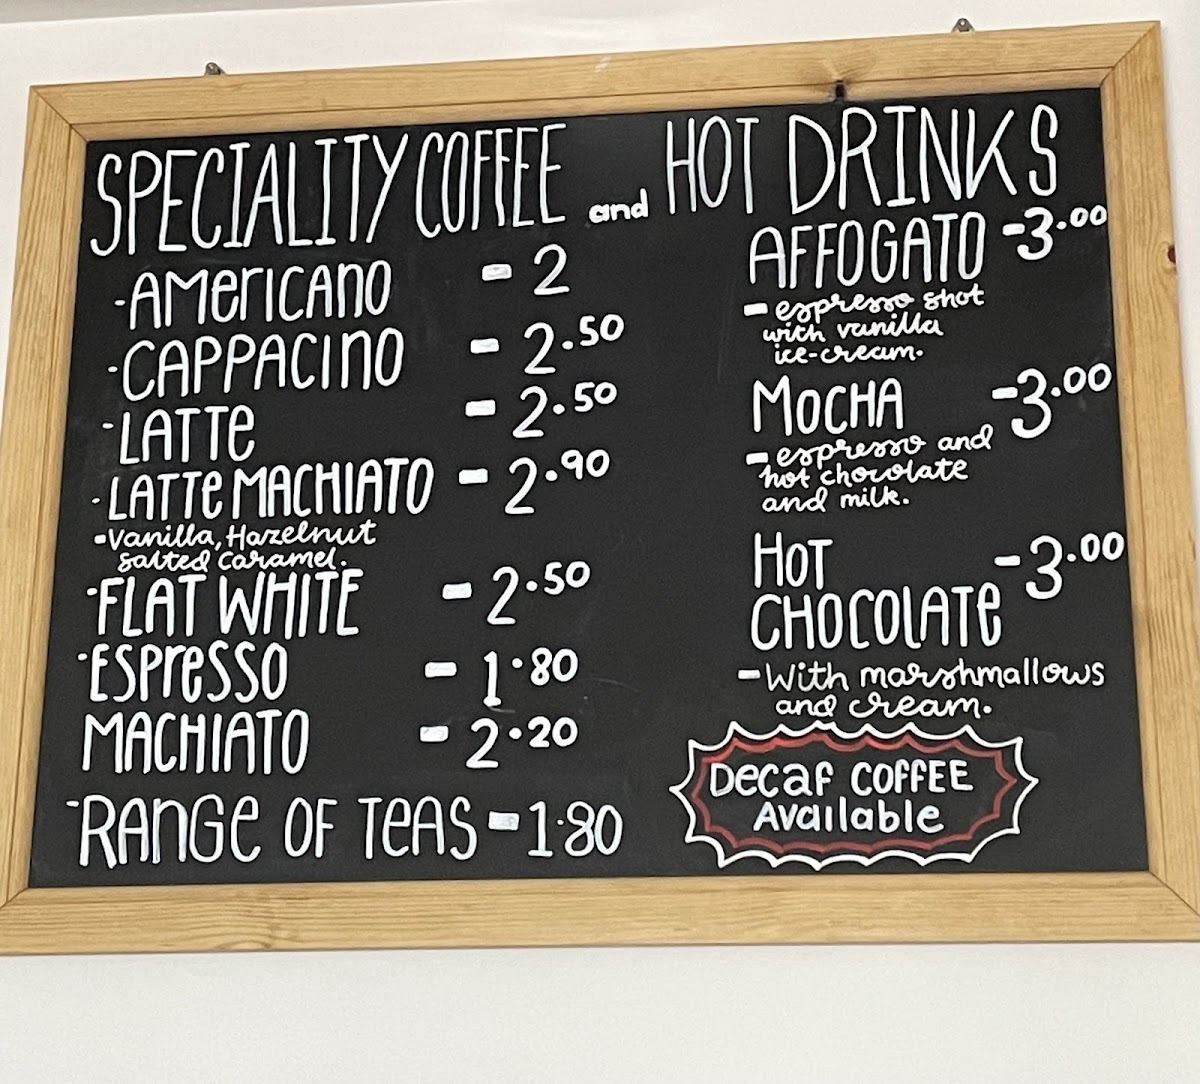 SPECIALITY COFFEE and HOT DRINKS
-AMERICANO - 2
-CAPPACINO - 2.50
-LATTE - 2.50
-LATTE MACHIATO - 2.90
-Vanilla, Hazelnut
salted caramel.
-FLAT WHITE - 2.50
-ESPRESSO - 1.80
MACHIATO - 2.20
-RANGE OF TEAS - 1.80
AFFOGATO -3.00
- espresso shot
with vanilla
ice-cream.
MOCHA -3.00
- espresso and
hot chocolate
and milk.
HOT
CHOCOLATE -3.00
- With marshmallows
and cream.
Decaf COFFEE
Available